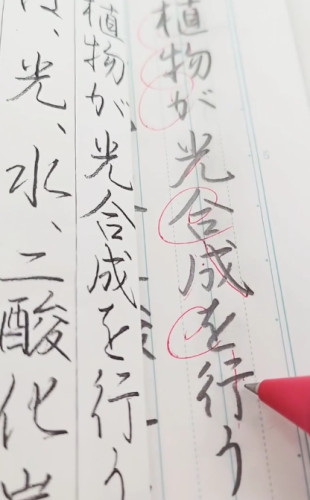 植物が光合成を行う
植物が光合成を行う
、光、水、二酸化炭